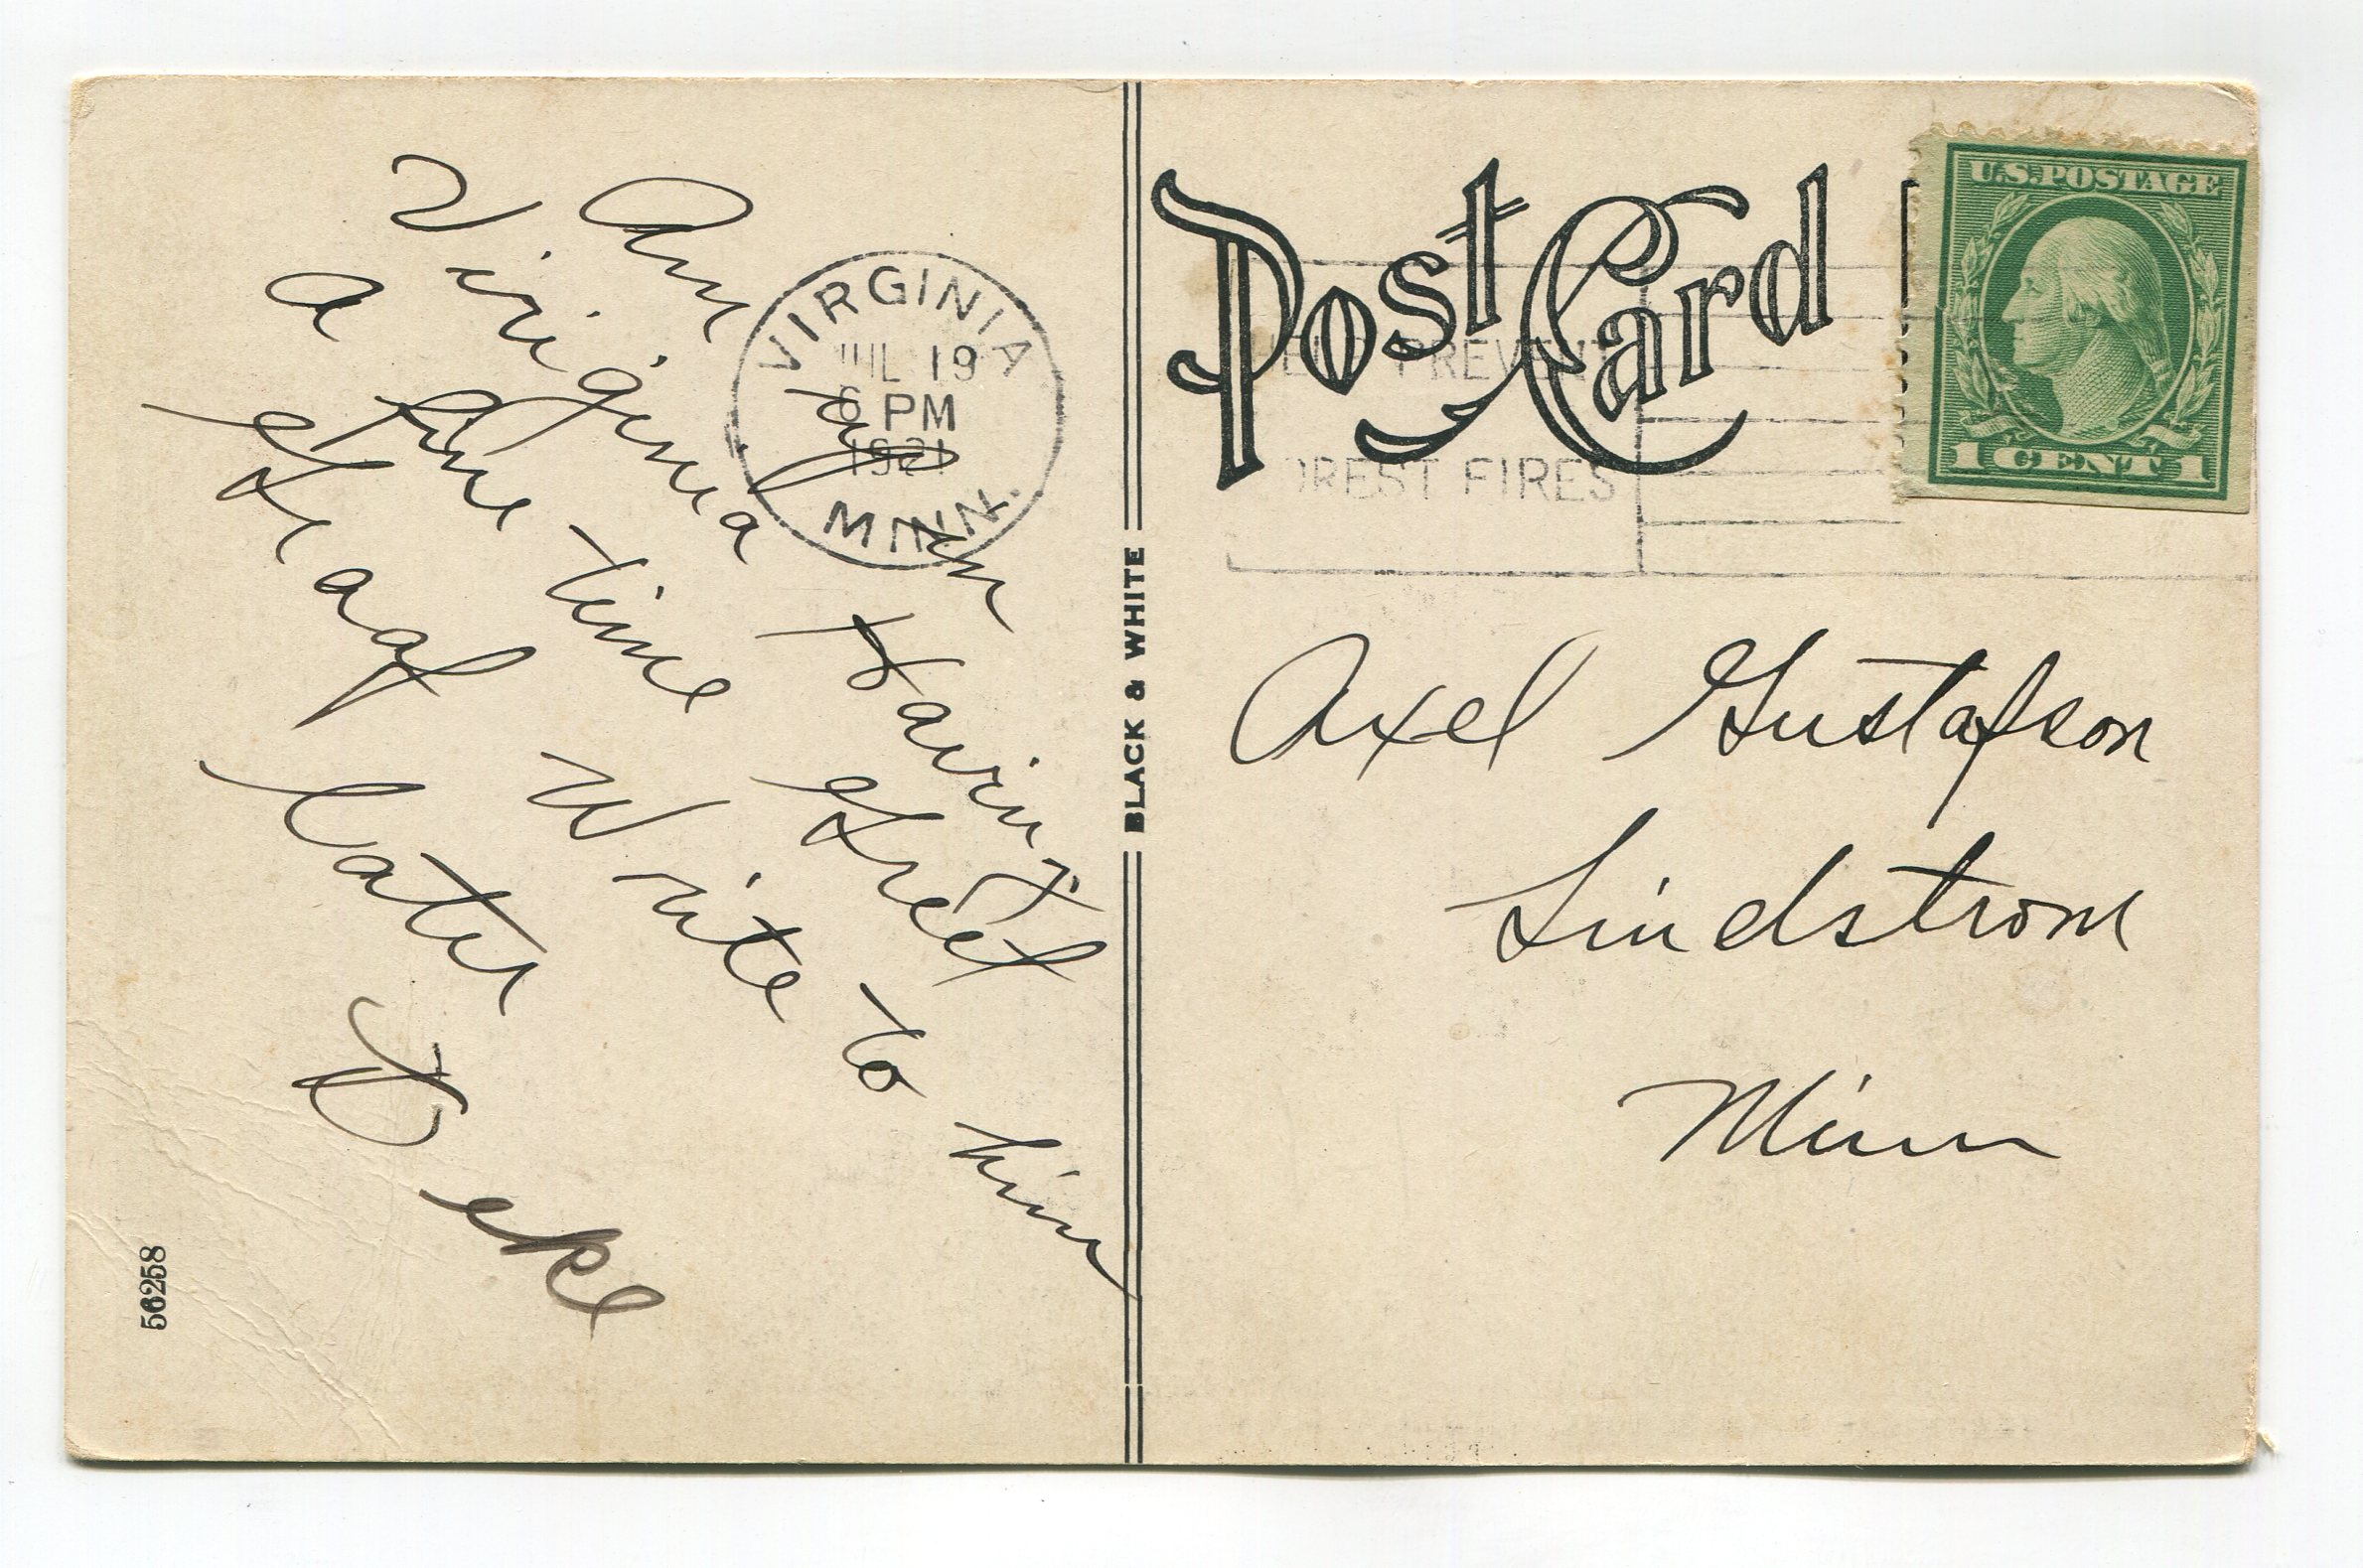 Am in
Virginia Having
a fine time Greet
Graaf Write to him
later
Deke
VIRGINIA
JUL 19
6 PM
1921
MINN.
56258
BLACK & WHITE
Post Card
PREVENT
FOREST FIRES
U.S. POSTAGE
1 CENT 1
Axel Gustafson
Lindstrom
Minn